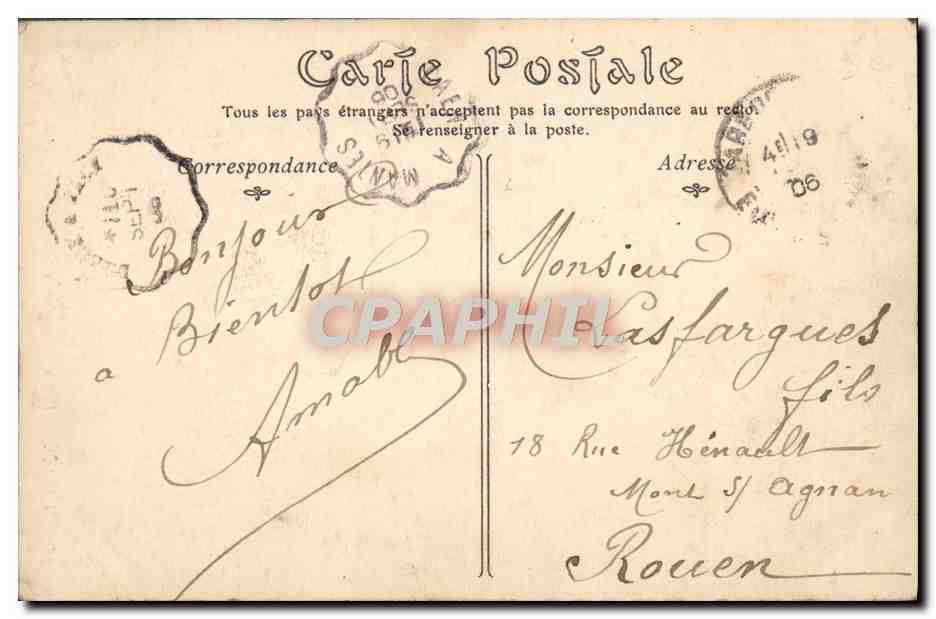 Carte Postale
Tous les pays étrangers n'acceptent pas la correspondance au recto.
Se renseigner à la poste.
Correspondance
Adresse
A MANTES
SEPT
4E/19
06
Bonjour
a Bientot
Amable
CPAPHIL
Monsieur
Lasfargues
fils
18 Rue Hénault
Mont S/ Agnan
Rouen